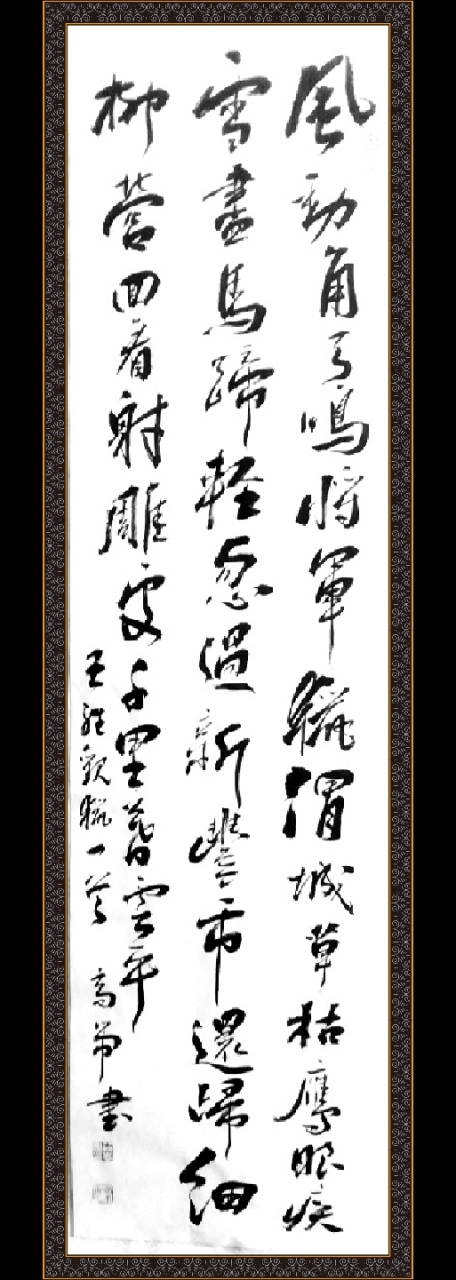 風動角弓鳴將軍獵渭城草枯鷹眼疾
雪盡馬蹄輕忽過新豐市還歸細
柳營回看射雕處千里暮雲平
王維觀獵一首 高 書